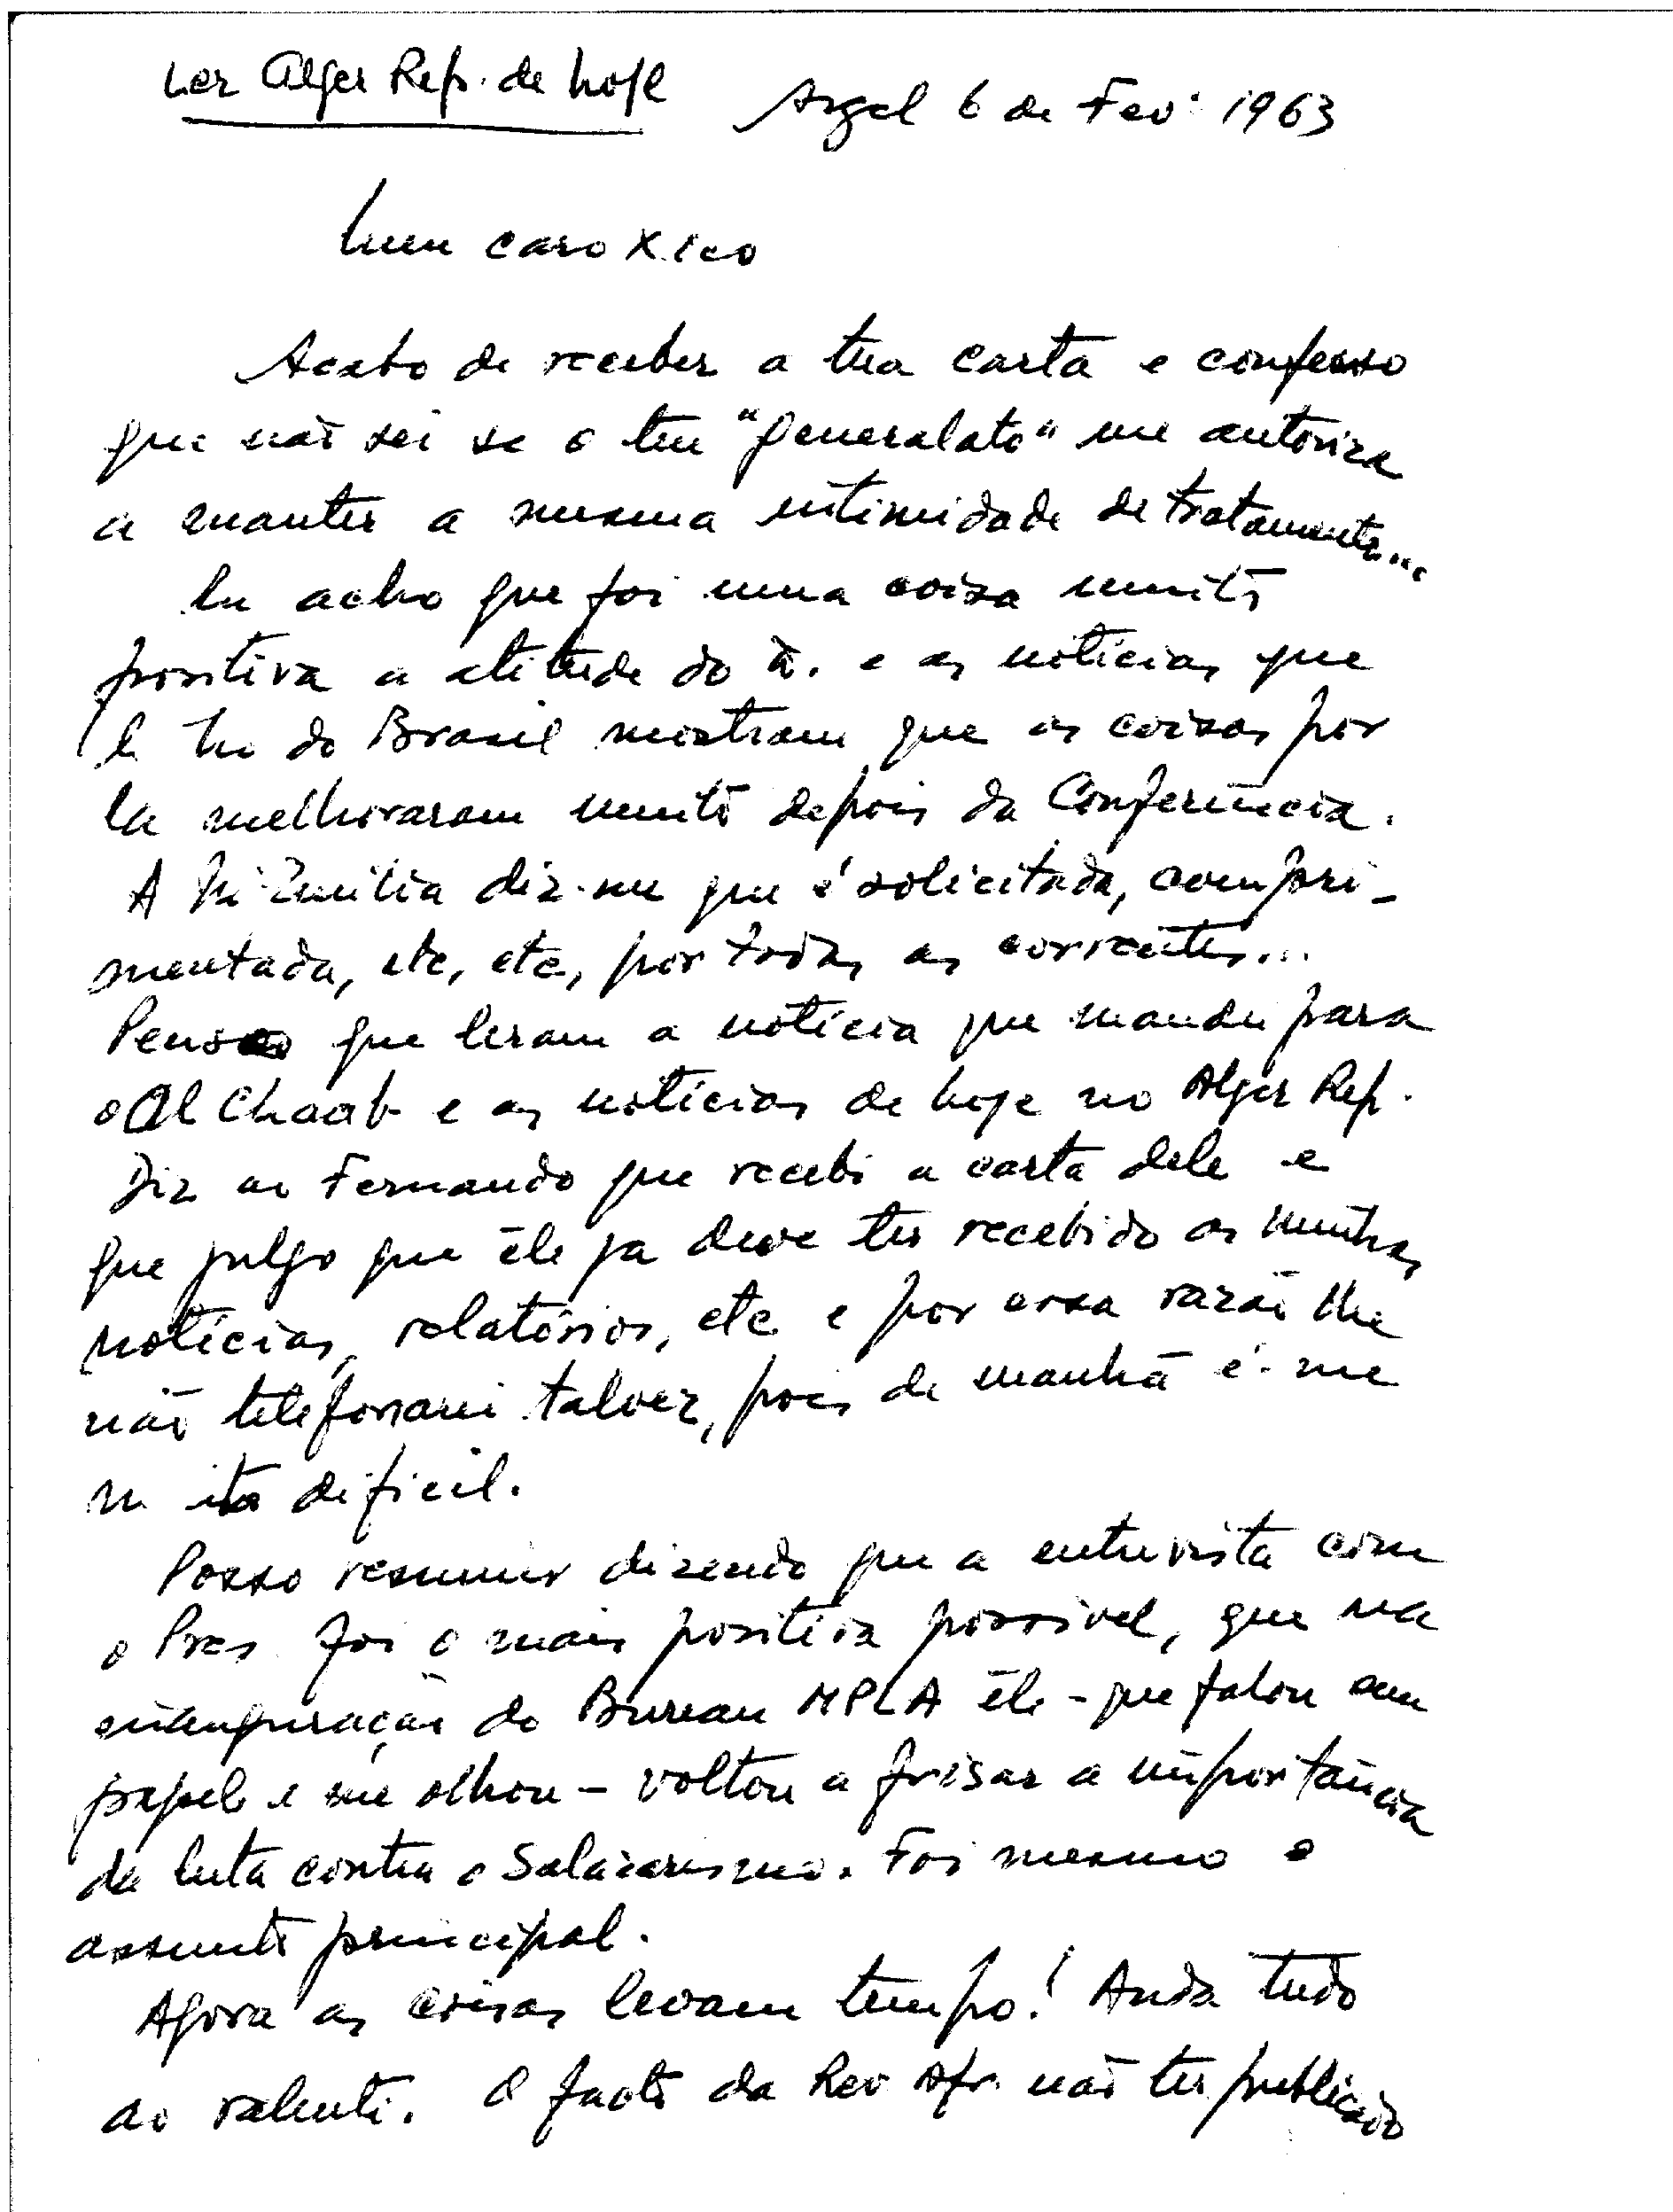 Ler Alger Rep. de hoje
Argel 6 de Fev. 1963
Meu caro Xico
Acabo de receber a tua carta e confesso
que não sei se o teu "generalato" me autoriza
a manter a mesma intimidade de tratamento...
Eu acho que foi uma coisa muito
positiva a atitude do A. e as notícias que
tenho do Brasil mostram que as coisas por
la melhoraram muito depois da Conferência.
A Mª Emília diz-me que é solicitada, compri-
mentada, etc, etc, por todas as correntes...
Penso que leram a notícia que mandei para
o Al Chaab e as notícias de hoje no Alger Rep.
Diz ao Fernando que recebi a carta dele e
que julgo que êle ja deve ter recebido as minhas
notícias, relatórios, etc e por essa razão lhe
não telefonarei talvez, pois de manhã é-me
muito dificil.
Posso resumir dizendo que a entrevista com
o Pres. foi o mais positiva possível, que na
inauguração do Bureau MPLA êle - que falou sem
papel e me olhou - voltou a frisar a importância
da luta contra o Salazarismo. Foi mesmo o
assunto principal.
Agora as coisas levam tempo! Anda tudo
ao ralenti. O facto da Rev Afr. não ter publicado